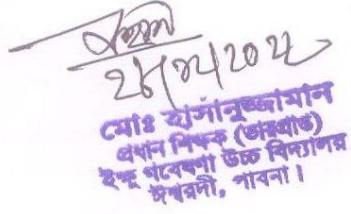 মোঃ হাসানুজ্জামান
প্রধান শিক্ষক (ভারপ্রাপ্ত)
ইক্ষু গবেষণা উচ্চ বিদ্যালয়
ঈশ্বরদী, পাবনা।